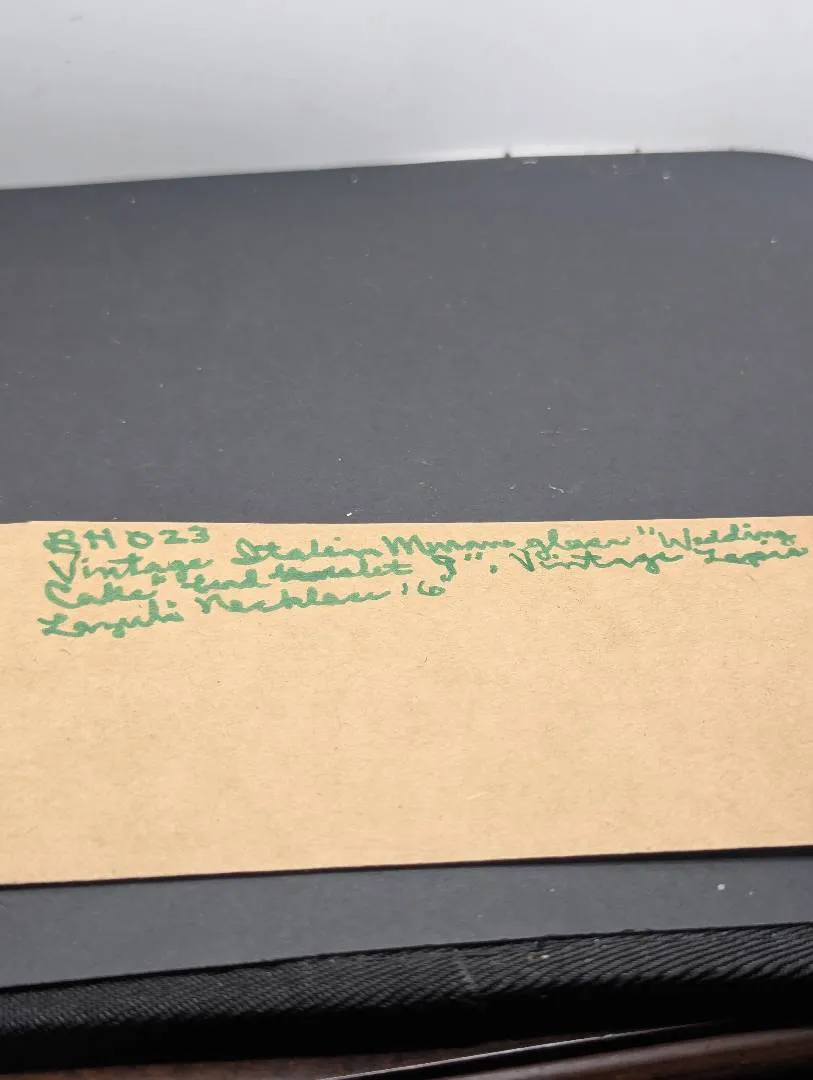 BH 023
Vintage Italian Murano glass "Wedding
Cake" bracelet 9", Vintage Lapis
Lazuli Necklace 16"